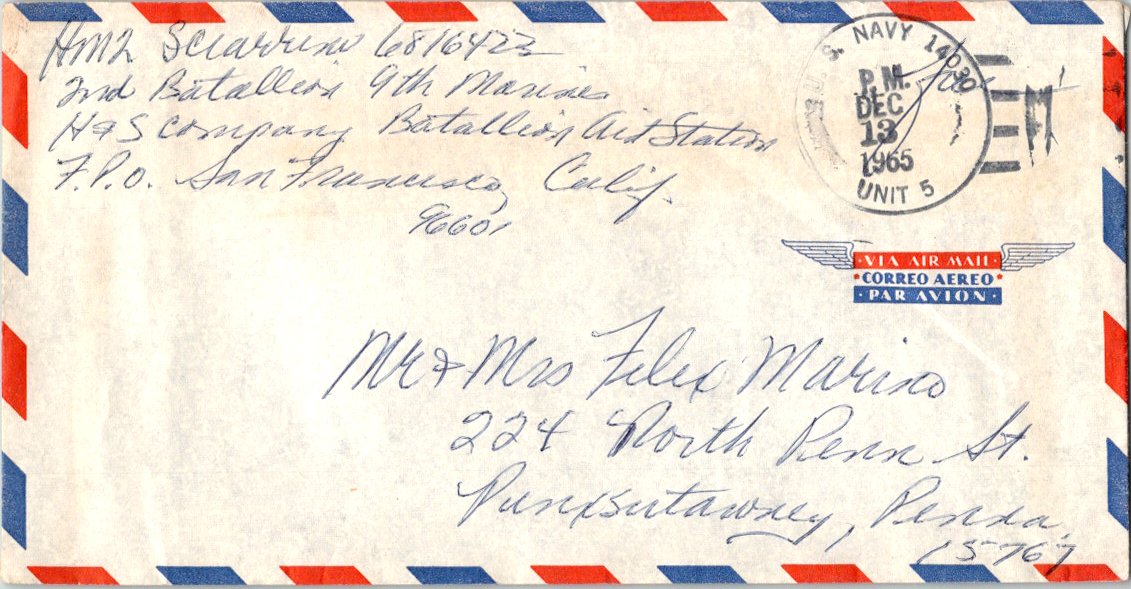 HM2 Sciarrino 6816422
2nd Batallion 9th Marines
H & S Company Batallion Aid Station
F.P.O. San Francisco, Calif.
96601
U. S. NAVY 14030
P.M.
DEC
13
1965
UNIT 5
VIA AIR MAIL
CORREO AEREO
PAR AVION
Mr & Mrs Felix Marino
224 North Penn St.
Punxsutawney, Penna,
15767